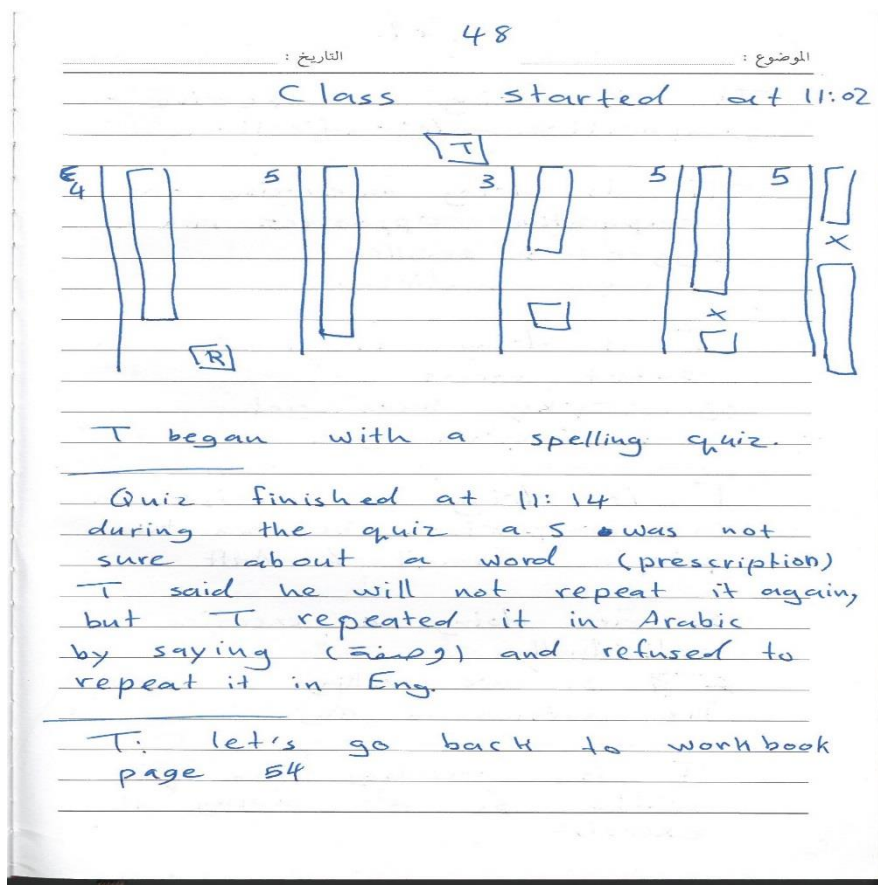 48
الموضوع : التاريخ :
Class started at 11:02
T
4 5 3 5 5
X
X
R
T began with a spelling quiz.
Quiz finished at 11:14
during the quiz a S was not
sure about a word (prescription)
T said he will not repeat it again,
but T repeated it in Arabic
by saying (وصفة) and refused to
repeat it in Eng.
T: let's go back to workbook
page 54